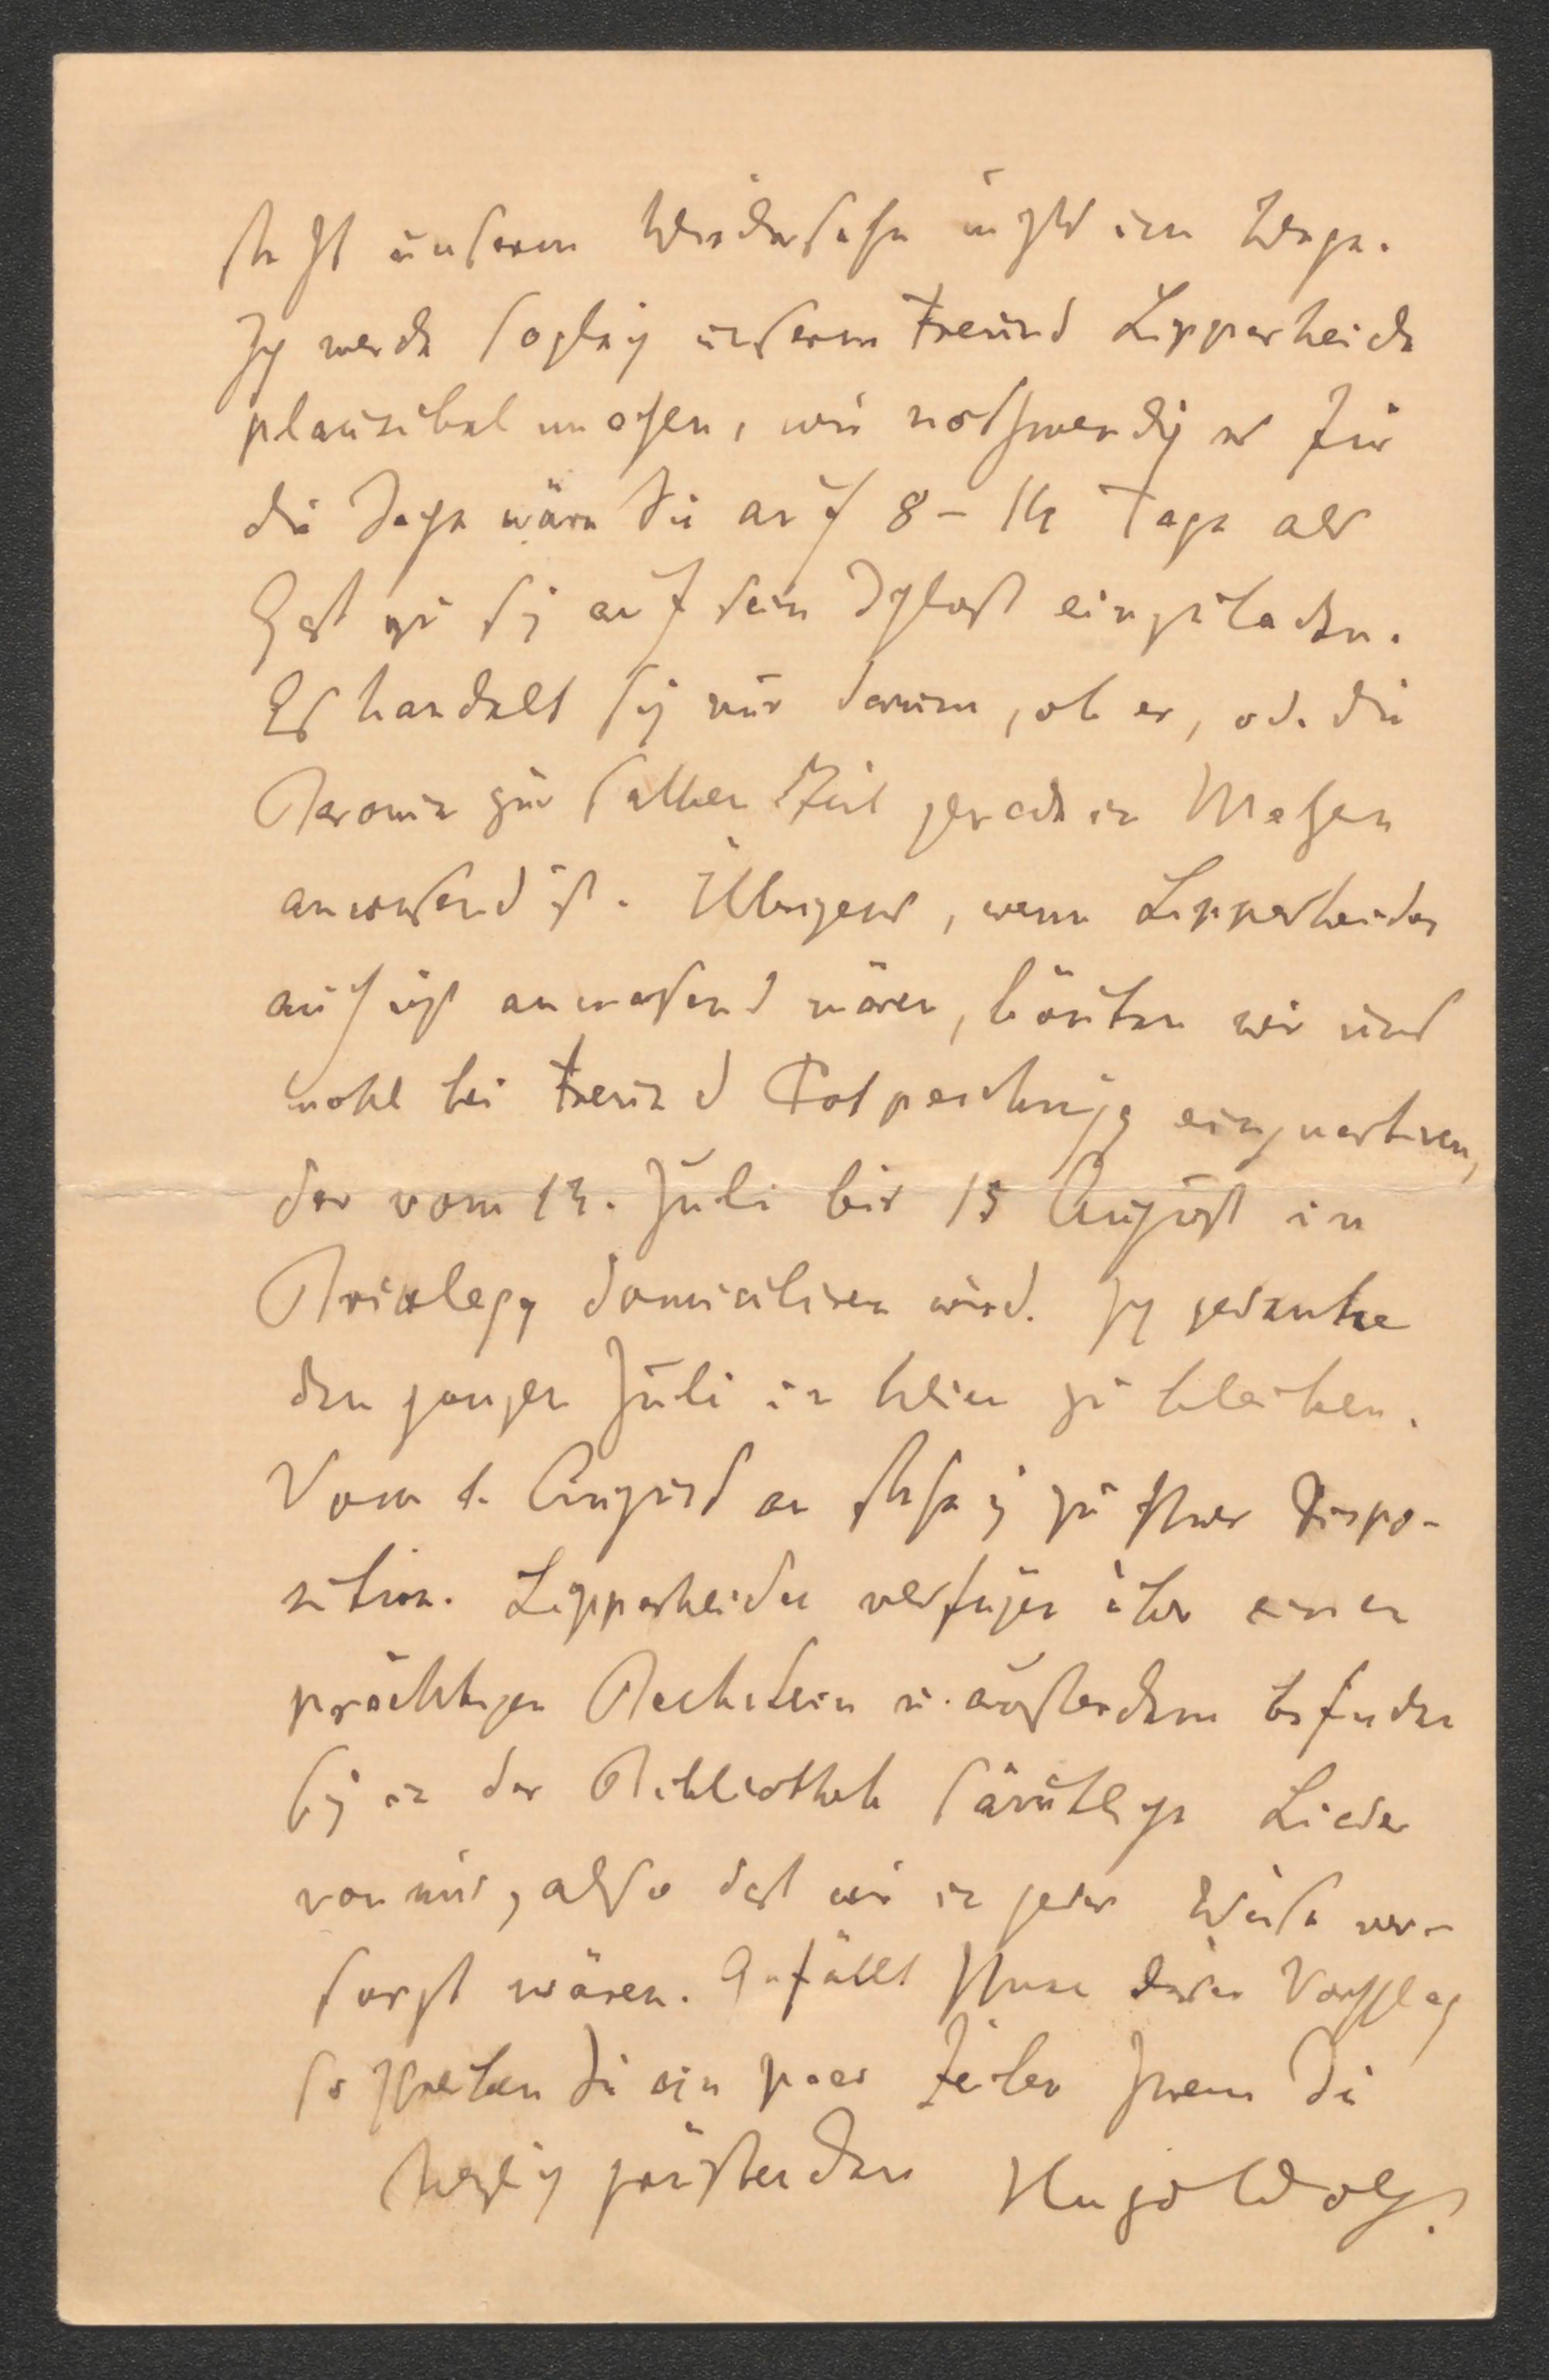 steht unserem Wiedersehn nichts im Wege.
Ich werde sogleich unserem Freund Lipperheide
plausibel machen, wie nothwendig es für
die Sache wäre Sie auf 8–14 Tage als
Gast zu sich auf sein Schloß einzuladen.
Es handelt sich nur darum, ob er, od. die
Baronin zur selben Zeit gerade in Matzen
anwesend ist. Übrigens, wenn Lipperheides
auch nicht anwesend wären, könnten wir uns
wohl bei Freund Potpeschnigg einquartiren,
der vom 13. Juli bis 15 August in
Brixlegg domiciliren wird. Ich gedenke
den ganzen Juli in Wien zu bleiben.
Vom 1. August an stehe ich zu Ihrer Dispo-
sition. Lipperheides verfügen über einen
prächtigen Bechstein u. außerdem befinden
sich in der Bibliothek sämtliche Lieder
von mir, also daß wir in jeder Weise ver-
sorgt wären. Gefällt Ihnen dieser Vorschlag
so schreiben Sie ein paar Zeilen Ihrem Sie
herzlich grüßenden Hugo Wolf.